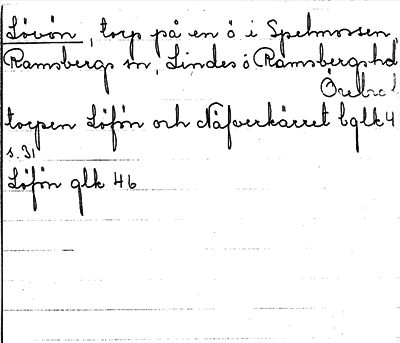 Lövön, torp på en ö i Spelmossen,
Ramsbergs sn, Lindes o Ramsbergs hd
Örebro l
torpen Löfön och Näfverkärret bglk 4
s. 31
Löfön glk 46